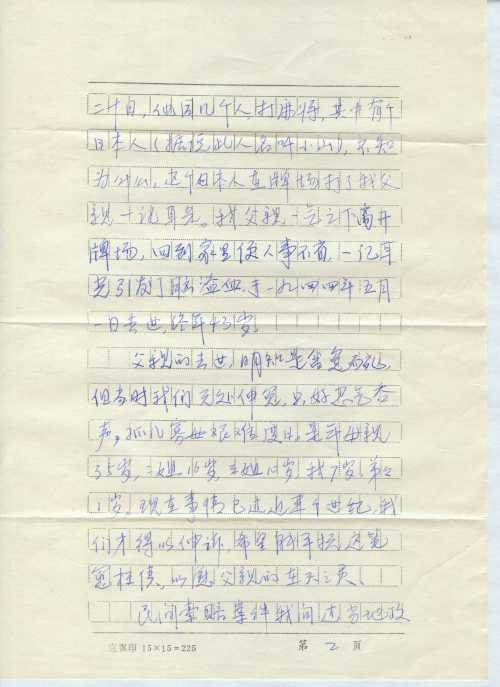 二十日,他同几个人打麻将,其中有个
日本人(据说此人名叫小山),不知
为什么,这个日本人在牌场打了我父
亲一记耳光。我父亲一气之下离开
牌场,回到家里便人事不省,一记耳
光引发了脑溢血,于一九四四年五月
一日去世,终年43岁。
父亲的去世,明知是含冤而死,
但当时我们无处伸冤,也好忍气吞
声。孤儿寡母艰难度日。是年母亲
35岁,二姐16岁,三姐10岁,我7岁,弟
1岁。现在事情已过近半个世纪,我
们才得以伸诉,希望能平掉这笔
冤枉债,以慰父亲的在天之灵。
民间索赔案件我问过当地政
克裳印 15×15=225
第 2 页